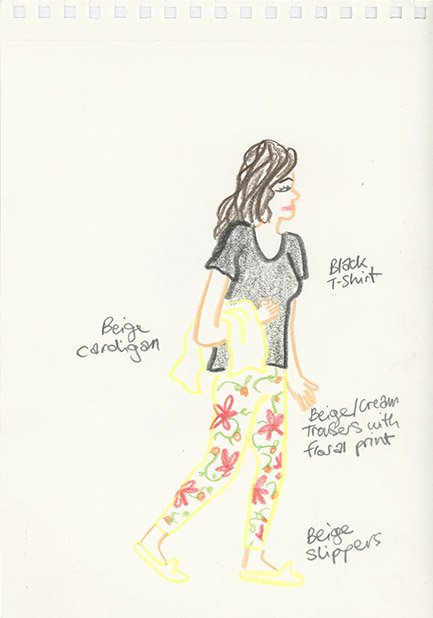 Black
T-Shirt
Beige
cardigan
Beige/Cream
Trousers with
floral print
Beige
slippers